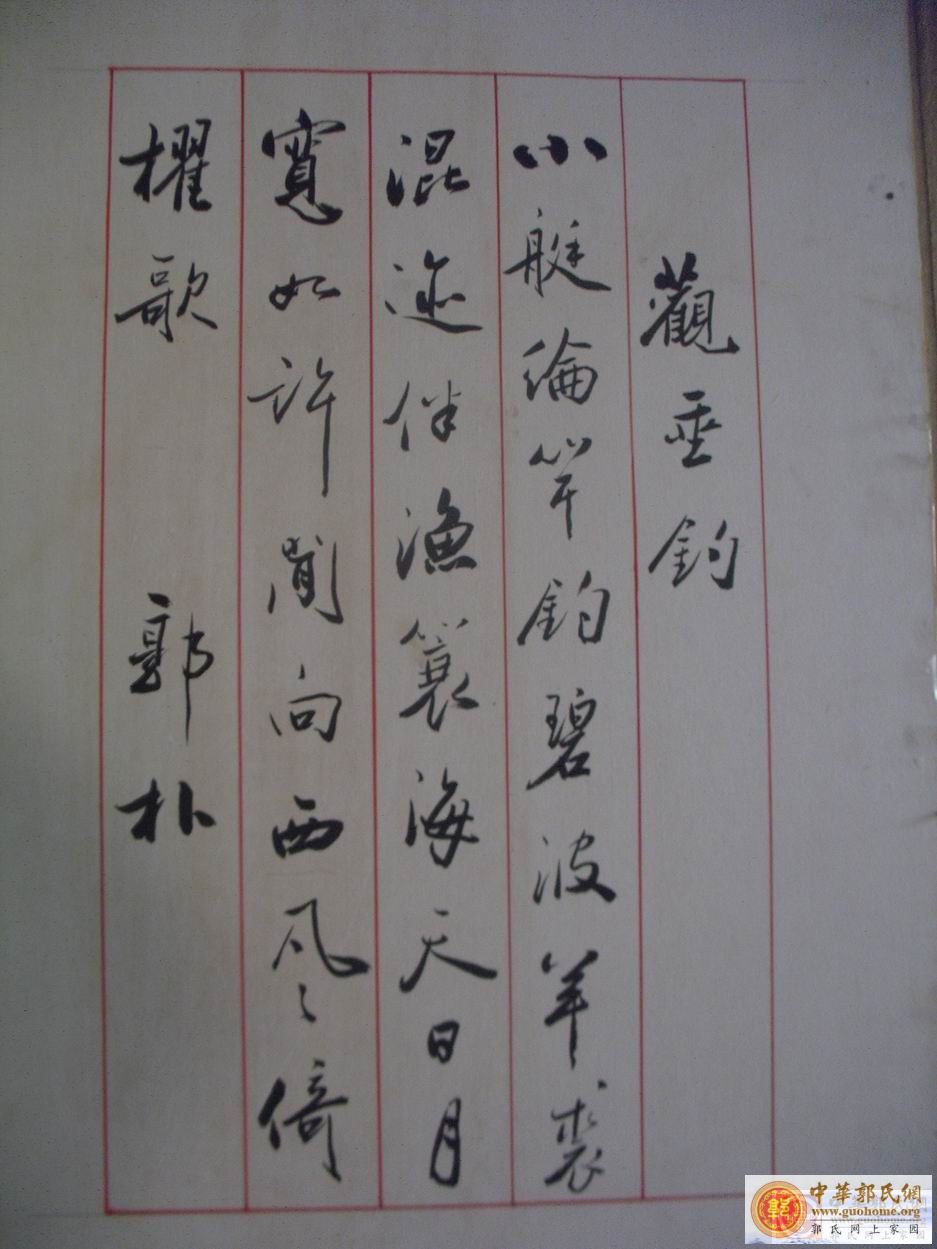 觀垂釣
小艇綸竿釣碧波羊裘
混迹伴漁蓑海天日月
寬如許閒向西風〻倚
櫂歌 郭朴
中華郭氏網
www.guohome.org
郭氏网上家园